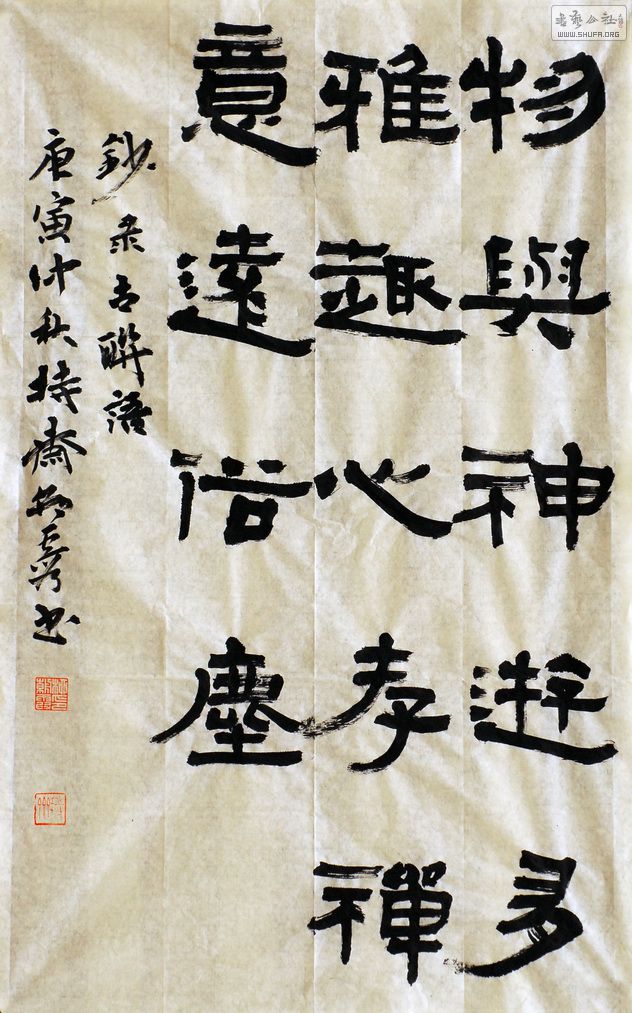 物與神遊多
雅趣心存禪
意遠俗塵
鈔录古聯語
庚寅仲秋持齋书
書藝公社
WWW.SHUFA.ORG